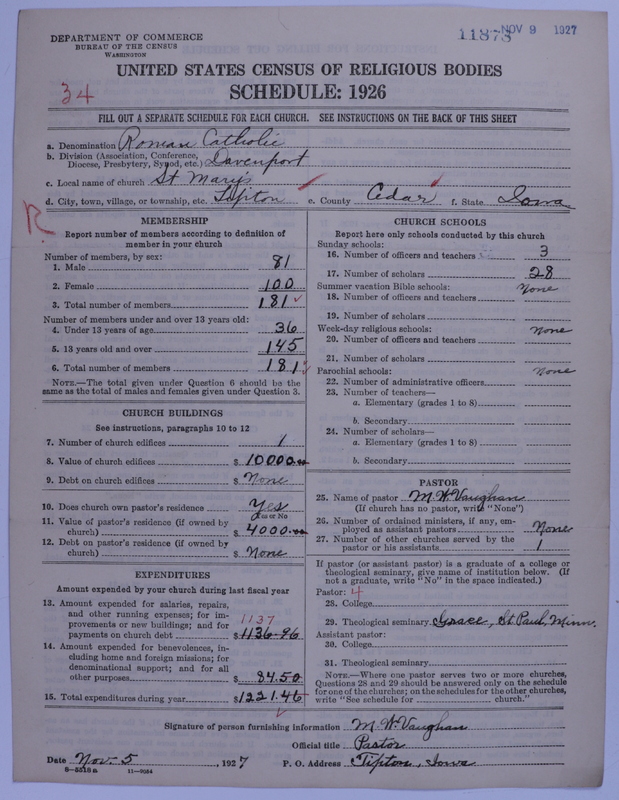 DEPARTMENT OF COMMERCE
BUREAU OF THE CENSUS
WASHINGTON
11873 NOV 9 1927
UNITED STATES CENSUS OF RELIGIOUS BODIES
SCHEDULE: 1926
34
FILL OUT A SEPARATE SCHEDULE FOR EACH CHURCH. SEE INSTRUCTIONS ON THE BACK OF THIS SHEET
a. Denomination Roman Catholic
b. Division (Association, Conference, Diocese, Presbytery, Synod, etc.) Davenport
c. Local name of church St Mary's
d. City, town, village, or township, etc. Tipton e. County Cedar f. State Iowa
R
MEMBERSHIP
Report number of members according to definition of
member in your church
Number of members, by sex:
1. Male 81
2. Female 100
3. Total number of members 181
Number of members under and over 13 years old:
4. Under 13 years of age 36
5. 13 years old and over 145
6. Total number of members 181
NOTE.—The total given under Question 6 should be the
same as the total of males and females given under Question 3.
CHURCH BUILDINGS
See instructions, paragraphs 10 to 12
7. Number of church edifices 1
8. Value of church edifices $ 10000.00
9. Debt on church edifices $ None
10. Does church own pastor's residence Yes
Yes or No
11. Value of pastor's residence (if owned by
church) $ 4000.00
12. Debt on pastor's residence (if owned by
church) $ None
EXPENDITURES
Amount expended by your church during last fiscal year
13. Amount expended for salaries, repairs,
and other running expenses; for im-
provements or new buildings; and for 1137
payments on church debt $ 1136.96
14. Amount expended for benevolences, in-
cluding home and foreign missions; for
denominational support; and for all
other purposes $ 84.50
15. Total expenditures during year $ 1221.46
CHURCH SCHOOLS
Report here only schools conducted by this church
Sunday schools:
16. Number of officers and teachers 3
17. Number of scholars 28
Summer vacation Bible schools: None
18. Number of officers and teachers
19. Number of scholars
Week-day religious schools: None
20. Number of officers and teachers
21. Number of scholars
Parochial schools: None
22. Number of administrative officers
23. Number of teachers—
a. Elementary (grades 1 to 8)
b. Secondary
24. Number of scholars—
a. Elementary (grades 1 to 8)
b. Secondary
PASTOR
25. Name of pastor M. W. Vaughan
(If church has no pastor, write "None")
26. Number of ordained ministers, if any, em-
ployed as assistant pastors None
27. Number of other churches served by the
pastor or his assistants 1
If pastor (or assistant pastor) is a graduate of a college or
theological seminary, give name of institution below. (If
not a graduate, write "No" in the space indicated.)
Pastor: 4
28. College
29. Theological seminary Grace, St. Paul, Minn.
Assistant pastor:
30. College
31. Theological seminary
NOTE.—Where one pastor serves two or more churches,
Questions 28 and 29 should be answered only on the schedule
for one of the churches; on the schedules for the other churches,
write "See schedule for church."
Signature of person furnishing information M. W. Vaughan
Official title Pastor
Date Nov. 5, 1927 P. O. Address Tipton, Iowa
8-5518a 11-9064